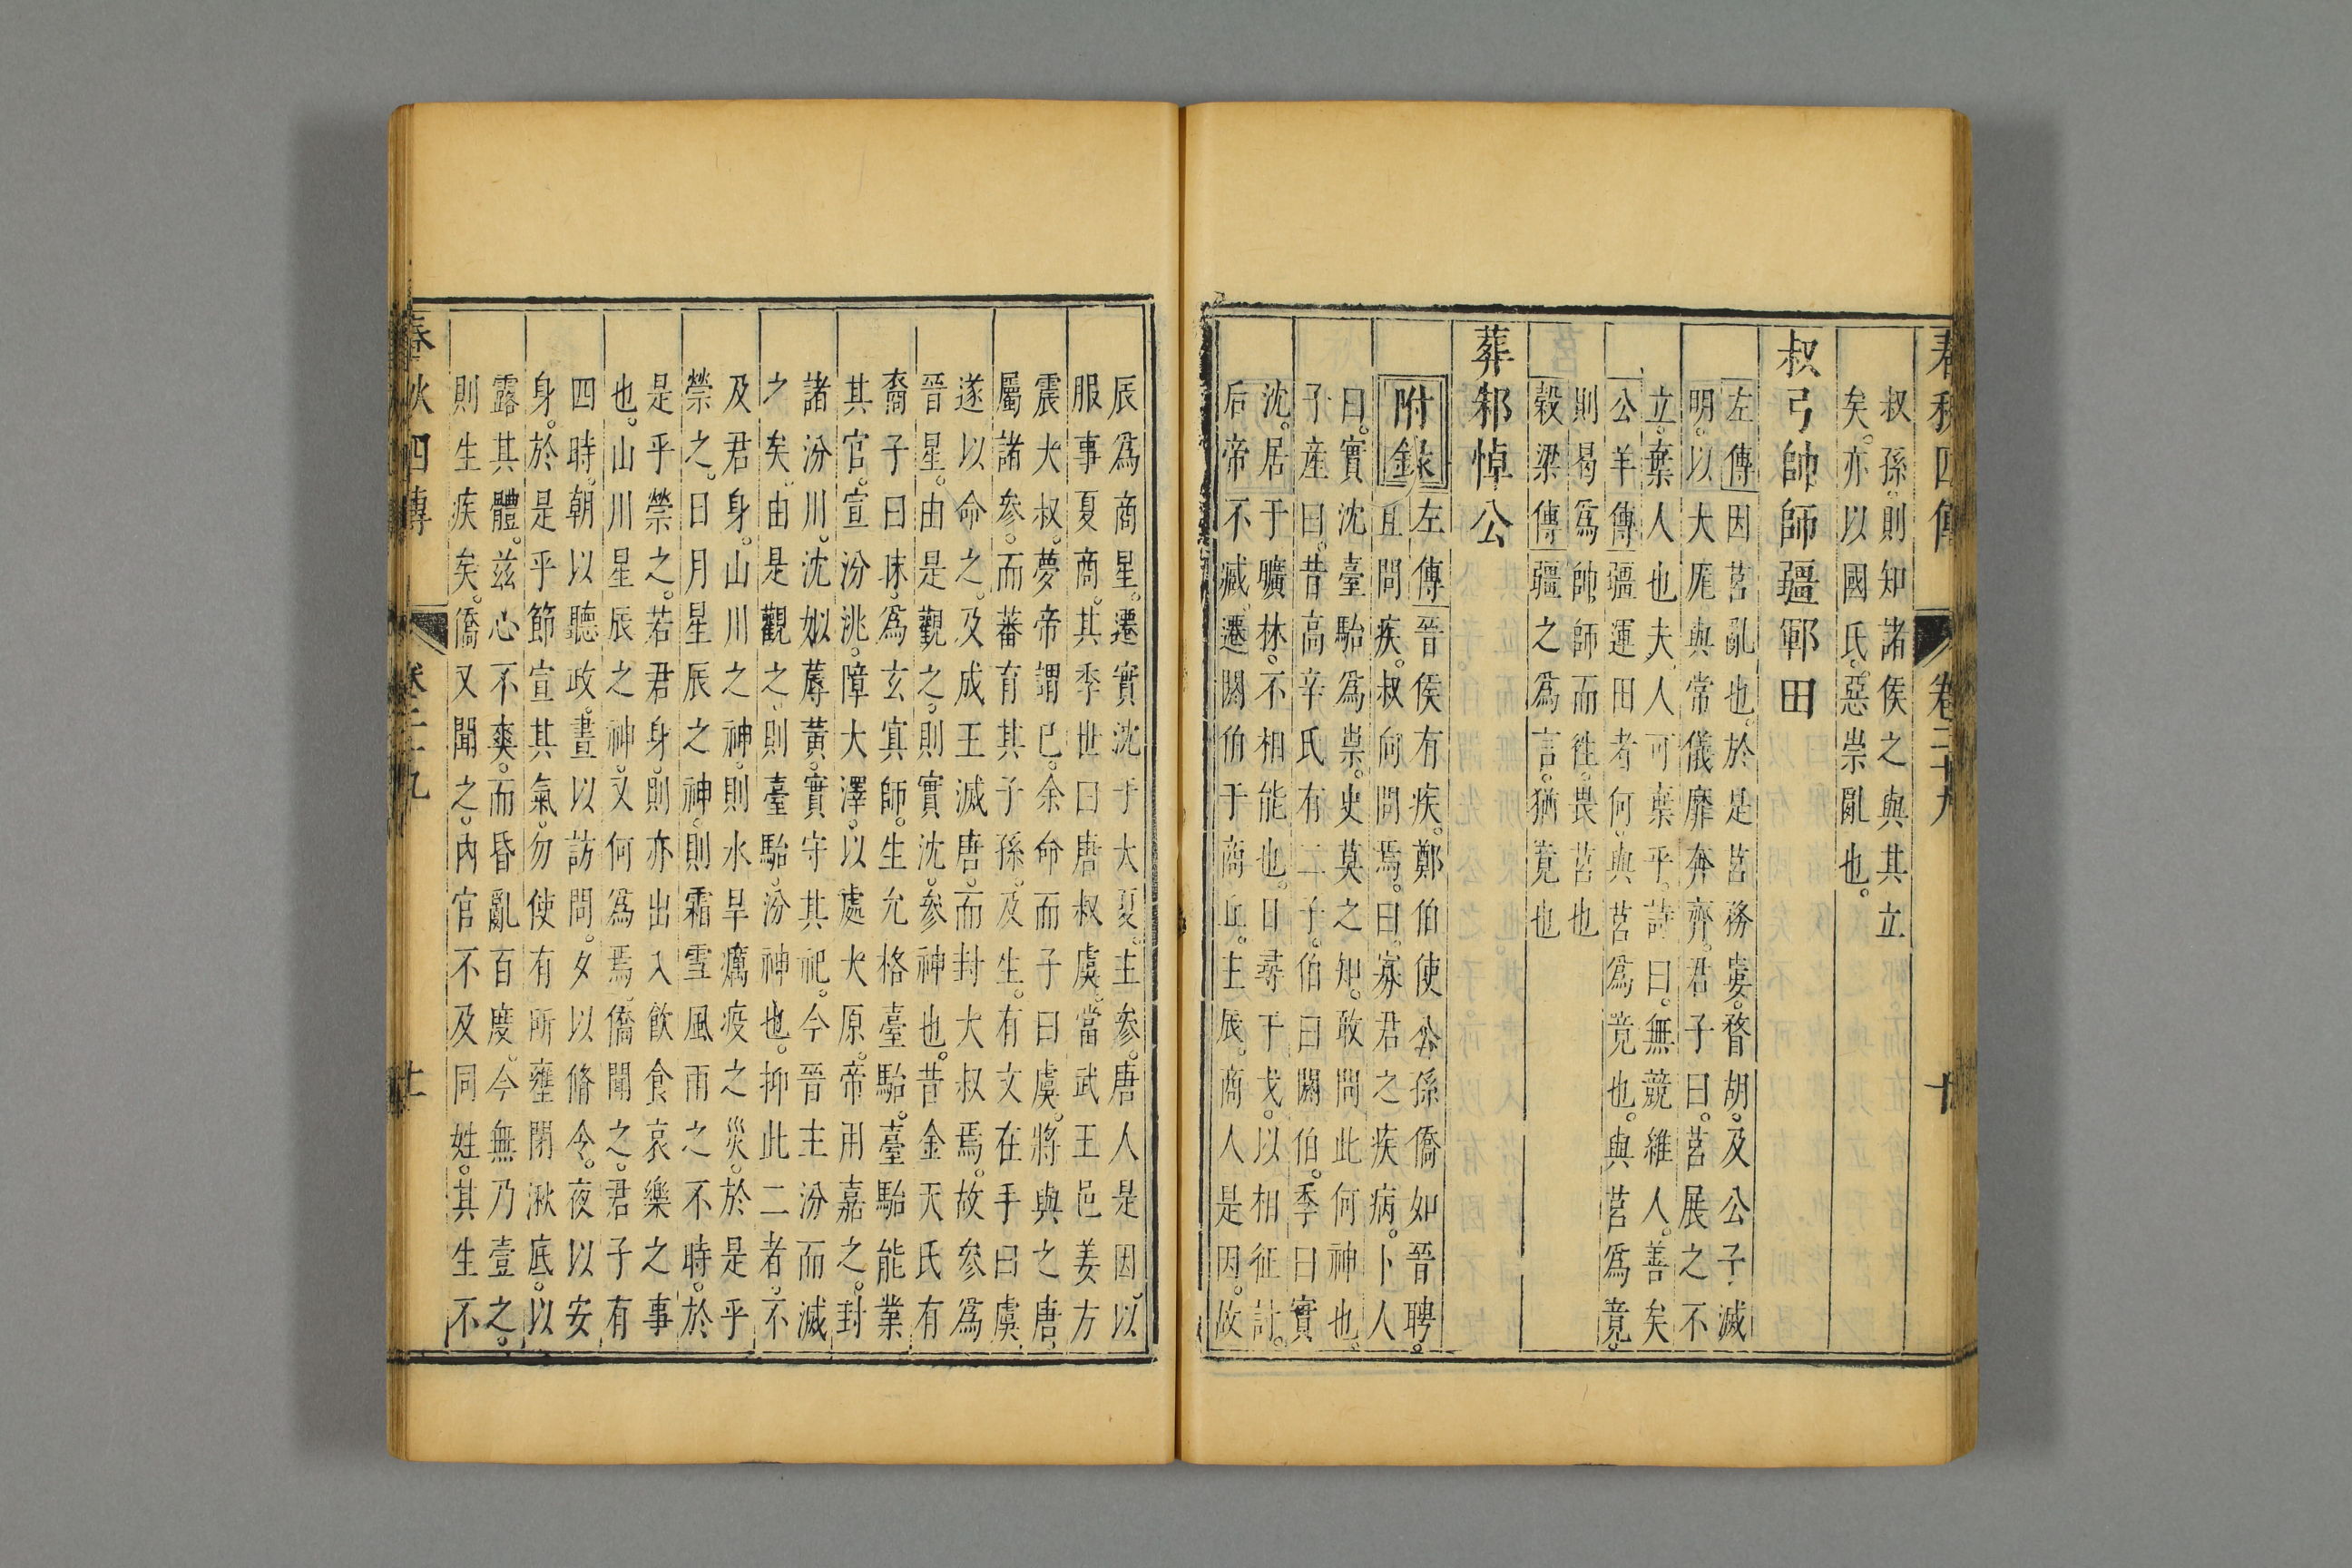 春秋四傳 卷二十九 十
叔孫。則知諸侯之與其立
矣。亦以國氏。惡崇亂也。
叔弓帥師疆鄆田
左傳因莒亂也。於是莒務婁。瞀胡。及公子滅
明。以大厖。與常儀靡奔齊。君子曰。莒展之不
立。棄人也夫。人可棄乎。詩曰。無競維人。善矣
公羊傳疆運田者何。與莒爲竟也。與莒爲竟。
則曷爲帥師而往。畏莒也
穀梁傳疆之爲言。猶竟也
葬邾悼公
附錄左傳晉侯有疾。鄭伯使公孫僑如晉聘。
且問疾。叔向問焉。曰。寡君之疾病。卜人
曰。實沈臺駘爲祟。史莫之知。敢問此何神也。
子產曰。昔高辛氏有二子。伯曰閼伯。季曰實
沈。居于曠林。不相能也。日尋干戈。以相征討。
后帝不臧。遷閼伯于商丘。主辰。商人是因。故
辰爲商星。遷實沈于大夏。主參。唐人是因。以
服事夏商。其季世曰唐叔虞。當武王邑姜方
震大叔。夢帝謂已。余命而子曰虞。將與之唐。
屬諸參。而蕃育其子孫。及生。有文在手曰虞。
遂以命之。及成王滅唐。而封大叔焉。故參爲
晉星。由是觀之。則實沈。參神也。昔金天氏有
裔子曰昧。爲玄冥師。生允格臺駘。臺駘能業
其官。宣汾洮。障大澤。以處大原。帝用嘉之。封
諸汾川。沈姒蓐黃。實守其祀。今晉主汾而滅
之矣。由是觀之。則臺駘。汾神也。抑此二者。不
及君身。山川之神。則水旱癘疫之災。於是乎
禜之。日月星辰之神。則霜雪風雨之不時。於
是乎禜之。若君身。則亦出入飲食哀樂之事
也。山川星辰之神。又何爲焉。僑聞之。君子有
四時。朝以聽政。晝以訪問。夕以脩令。夜以安
身。於是乎節宣其氣。勿使有所壅閉湫底。以
露其體。茲心不爽。而昏亂百度。今無乃壹之。
則生疾矣。僑又聞之。內官不及同姓。其生不
春秋四傳 卷二十九 十一